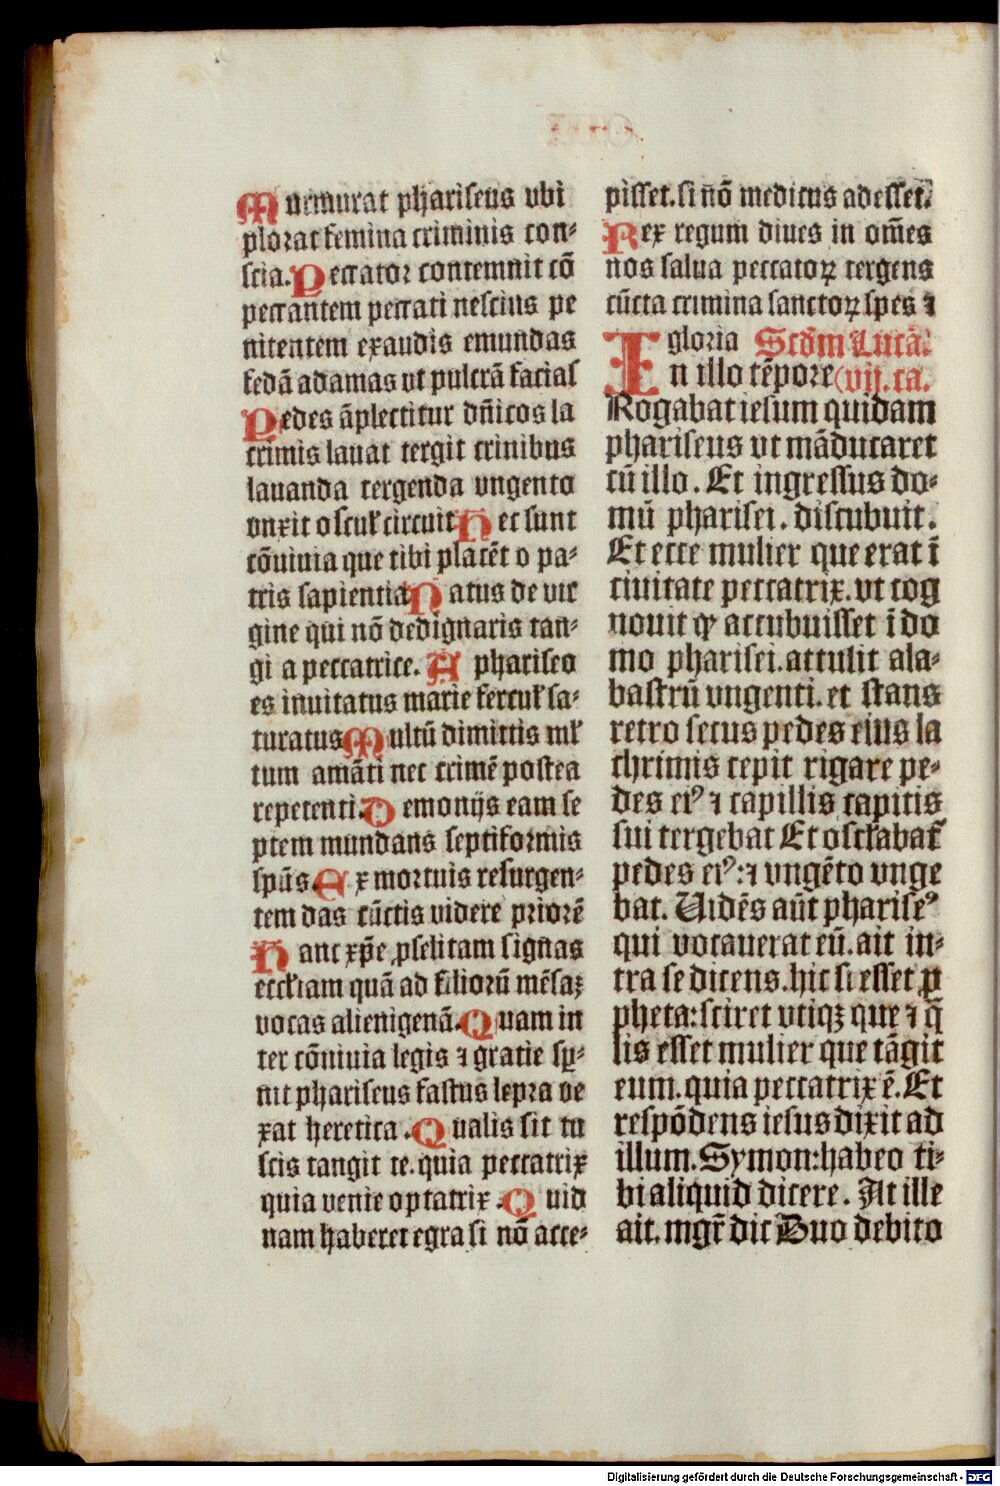 Murmurat phariseus vbi
plorat femina criminis con-
scia. Peccator contemnit cō
peccantem peccati nescius pe
nitentem exaudis emundas
fedā adamas ut pulcrā facias
Pedes āplectitur dn̄icos la
crimis lauat tergit crinibus
lauanda tergenda vngento
vnxit osculꝭ circuit Hec sunt
cōuiuia que tibi placēt o pa-
tris sapientia Natus de vir
gine qui nō dedignaris tan-
gi a peccatrice. A phariseo
es inuitatus marie ferculꝭ sa-
turatus Multū dimittis ml̄
tum amāti nec crimē postea
repetenti. Demonijs eam se
ptem mundans septiformis
spūs. Ex mortuis resurgen-
tem das cūctis videre priorē
Hanc xp̄e ꝓselitam signas
eccl̄iam quā ad filiorū mēsaꝫ
vocas alienigenā. Quam in
ter cōuiuia legis ⁊ gratie sp̄-
nit phariseus fastus lepra ve
xat heretica. Qualis sit tu
scis tangit te. quia peccatrix
quia venie optatrix. Quid
nam haberet egra si nō acce-
pisset. si nō medicus adesset.
Rex regum diues in om̄es
nos salua peccatoꝝ tergens
cūcta crimina sanctoꝝ spes ⁊
gloria Scd̄m Lucā.
In illo tēpore (vij. ca.
Rogabat iesum quidam
phariseus vt māducaret
cū illo. Et ingressus do-
mū pharisei. discubuit.
Et ecce mulier que erat ī
ciuitate peccatrix. vt cog
nouit ꝙ accubuisset ī do
mo pharisei. attulit ala-
bastrū vngenti. et stans
retro secus pedes eius la
chrimis cepit rigare pe-
des eiꝰ ⁊ capillis capitis
sui tergebat Et oscl̄abat̄
pedes eiꝰ: ⁊ vngēto vnge
bat. Uidēs aūt phariseꝰ
qui vocauerat eū. ait in-
tra se dicens. hic si esset ꝓ
pheta: sciret vtiqꝫ que ⁊ q̄
lis esset mulier que tāgit
eum. quia peccatrix ē. Et
respōdens iesus dixit ad
illum. Symon: habeo ti-
bi aliquid dicere. At ille
ait. mgr̄ dic Duo debito
Digitalisierung gefördert durch die Deutsche Forschungsgemeinschaft - DFG